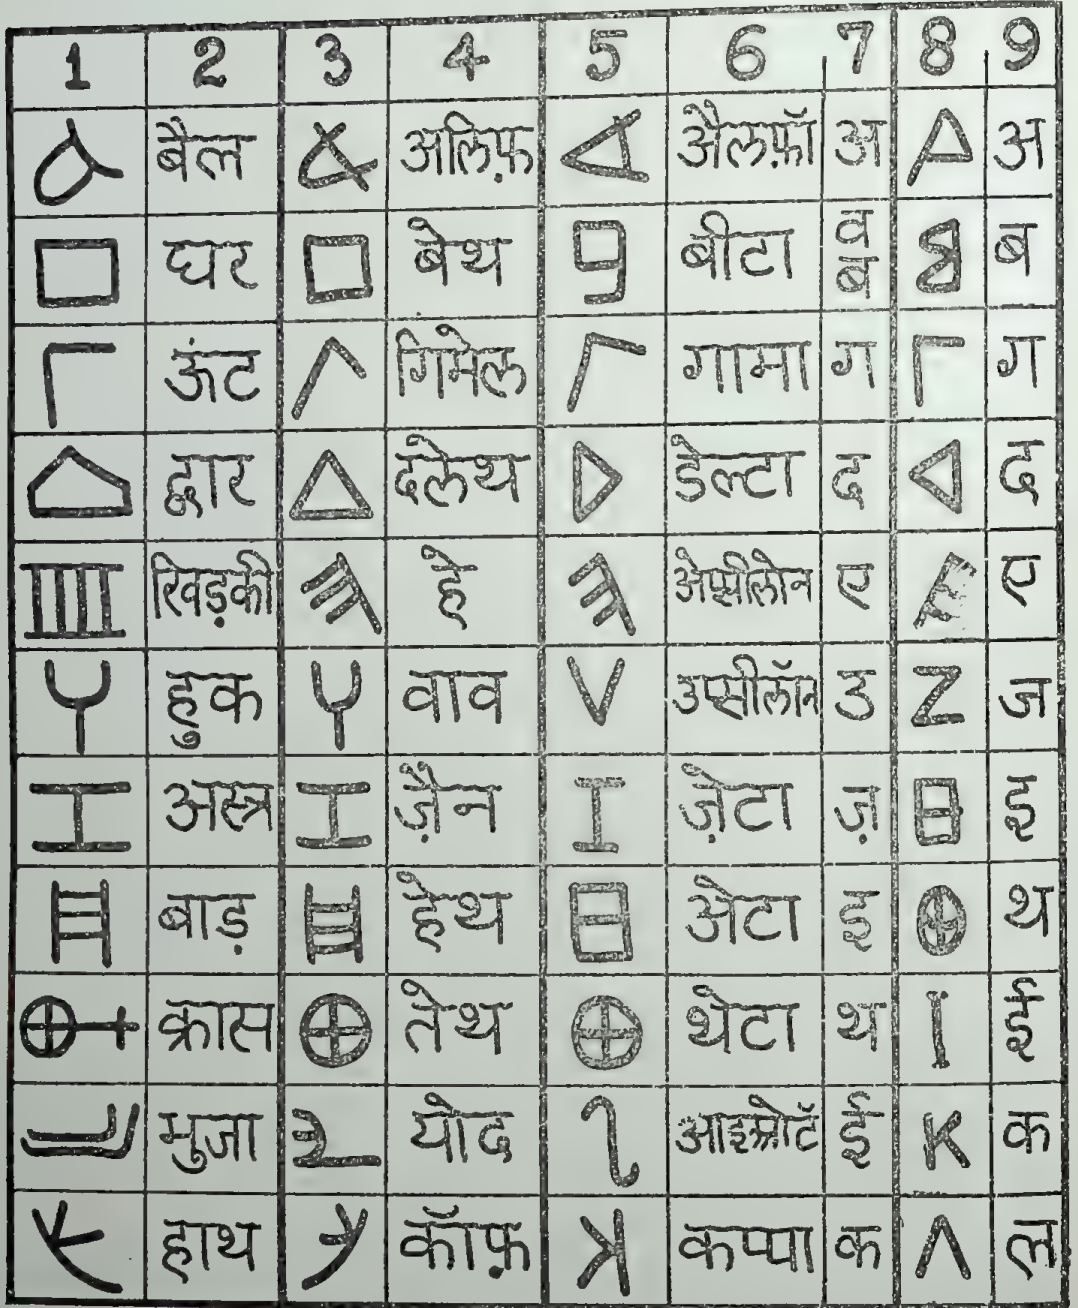 1 2 3 4 5 6 7 8 9
बैल अलिफ़ अैलफ़ॉ अ अ
घर बेथ बीटा व ब ब
ऊंट गिमेल गामा ग ग
द्वार दलेथ डेल्टा द द
खिड़की हे अेप्सीलोन ए ए
हुक वाव उप्सीलॉन उ Z ज
अस्त्र ज़ैन ज़ेटा ज़ इ
बाड़ हेथ अेटा इ थ
क्रास तेथ थेटा थ ई
भुजा योद ई K क
हाथ कॉफ़ कप्पा क ल